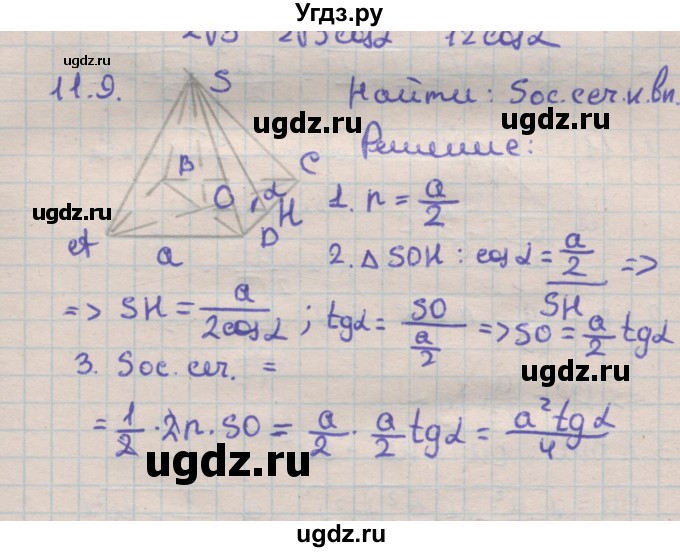 Угдз.ру
2√3 2√3cosα 12cosα
ugdz.ru
11.9.
S
Найти: Sос.сеч.к.вп.
ugdz.ru
Решение:
B
C
O
α
H
1. r = a/2
ugdz.ru
A
D
a
2. △ SOH : cosα = (a/2)/SH =>
=> SH = a/(2cosα) ; tgα = SO/(a/2) => SO = a/2 tgα
3. Sос.сеч. =
ugdz.ru
= 1/2 · 2r · SO = a/2 · a/2 tgα = a² tgα/4
ugdz.ru
ugdz.ru